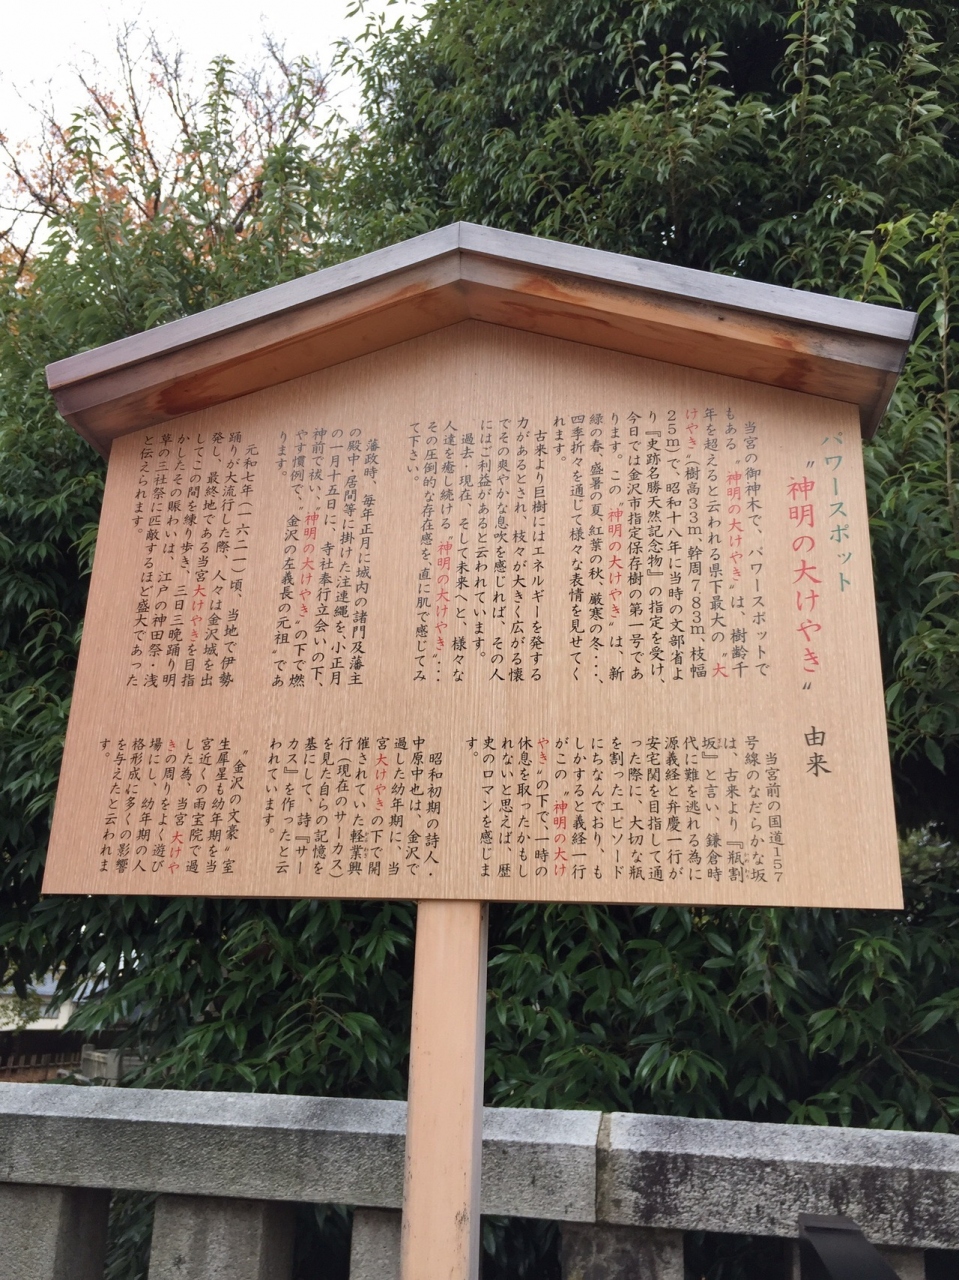 パワースポット
〝神明の大けやき〟 由来
当宮の御神木で、パワースポットで
もある〝神明の大けやき〟は、樹齢千
年を超えると云われる県下最大の〝大
けやき〟(樹高33m、幹周7.83m、枝幅
25m)で、昭和十八年に当時の文部省よ
り『史跡名勝天然記念物』の指定を受け、
今日では金沢市指定保存樹の第一号であ
ります。この〝神明の大けやき〟は、新
緑の春、盛暑の夏、紅葉の秋、厳寒の冬…、
四季折々を通じて様々な表情を見せてく
れます。
古来より巨樹にはエネルギーを発する
力があるとされ、枝々が大きく広がる懐
でその爽やかな息吹を感じれば、その人
にはご利益があると云われています。
過去・現在、そして未来へと、様々な
人達を癒し続ける〝神明の大けやき〟…
その圧倒的な存在感を、直に肌で感じてみ
て下さい。
藩政時、毎年正月に城内の諸門及藩主
の殿中・居間等に掛けた注連縄を、小正月
の一月十五日に、寺社奉行立会いの下、
神前で祓い、〝神明の大けやき〟の下で燃
やす慣例で、〝金沢の左義長の元祖〟であ
ります。
元和七年(一六二一)頃、当地で伊勢
踊りが大流行した際、人々は金沢城を出
発し、最終地である当宮大けやきを目指
してこの間を練り歩き、三日三晩踊り明
かしたその賑わいは、江戸の神田祭・浅
草の三社祭に匹敵するほど盛大であった
と伝えられます。
当宮前の国道157
号線のなだらかな坂
は、古来より『瓶割
坂』と言い、鎌倉時
代に難を逃れる為に
源義経と弁慶一行が
安宅関を目指して通
った際に、大切な瓶
を割ったエピソード
にちなんでおり、も
しかすると義経一行
がこの〝神明の大け
やき〟の下で、一時の
休息を取ったかもし
れないと思えば、歴
史のロマンを感じま
す。
昭和初期の詩人・
中原中也は、金沢で
過した幼年期に、当
宮大けやきの下で開
催されていた軽業興
行(現在のサーカス)
を見た自らの記憶を
基にして、詩『サー
カス』を作ったと云
われています。
〝金沢の文豪〟室
生犀星も幼年期を当
宮近くの雨宝院で過
した為、当宮大けや
きの周りをよく遊び
場にし、幼年期の人
格形成に多くの影響
を与えたと云われま
す。